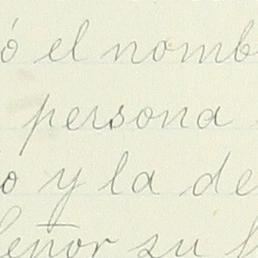 ó el nomb
persona
o y la de
Señor su h